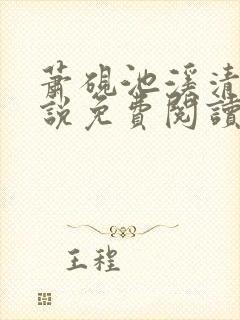 蕭硯池溪清
說免費閱讀
王程